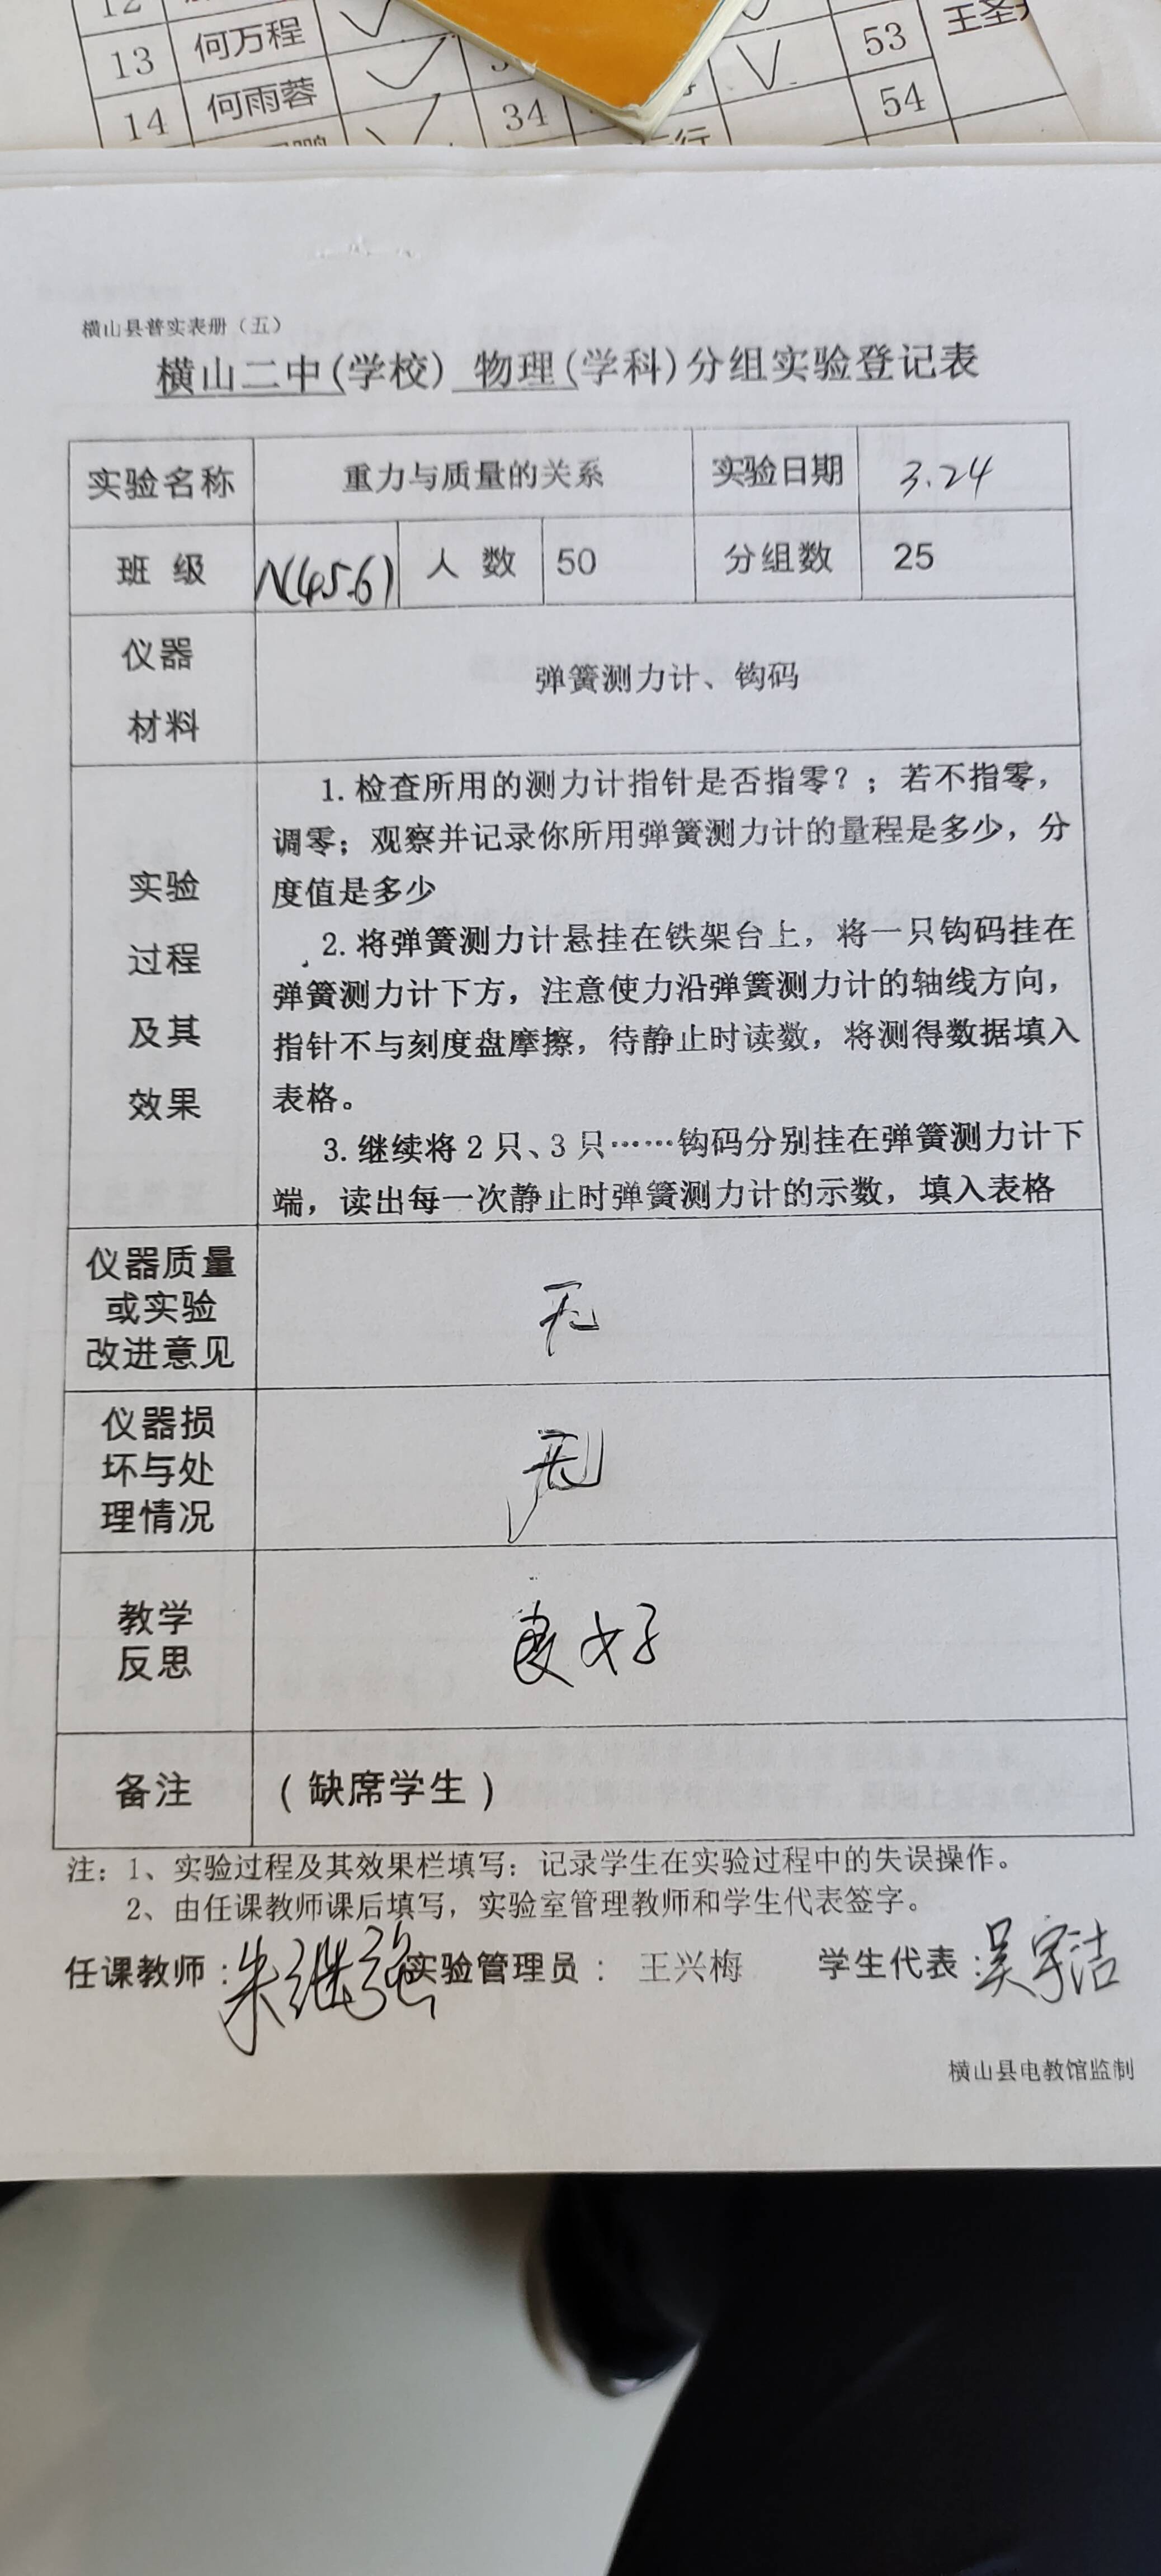 13 何万程 53 王圣
14 何雨蓉 34 54
横山县普实表册（五）
横山二中(学校) 物理(学科)分组实验登记表
实验名称 重力与质量的关系 实验日期 3.24
班 级 八(4.5.6) 人 数 50 分组数 25
仪器
材料
弹簧测力计、钩码
实验
过程
及其
效果
1.检查所用的测力计指针是否指零？；若不指零，
调零；观察并记录你所用弹簧测力计的量程是多少，分
度值是多少
2.将弹簧测力计悬挂在铁架台上，将一只钩码挂在
弹簧测力计下方，注意使力沿弹簧测力计的轴线方向，
指针不与刻度盘摩擦，待静止时读数，将测得数据填入
表格。
3.继续将2只、3只……钩码分别挂在弹簧测力计下
端，读出每一次静止时弹簧测力计的示数，填入表格
仪器质量
或实验
改进意见
无
仪器损
坏与处
理情况
无
教学
反思
良好
备注 （缺席学生）
注：1、实验过程及其效果栏填写：记录学生在实验过程中的失误操作。
2、由任课教师课后填写，实验室管理教师和学生代表签字。
任课教师：朱继强 实验管理员： 王兴梅 学生代表：吴宇洁
横山县电教馆监制